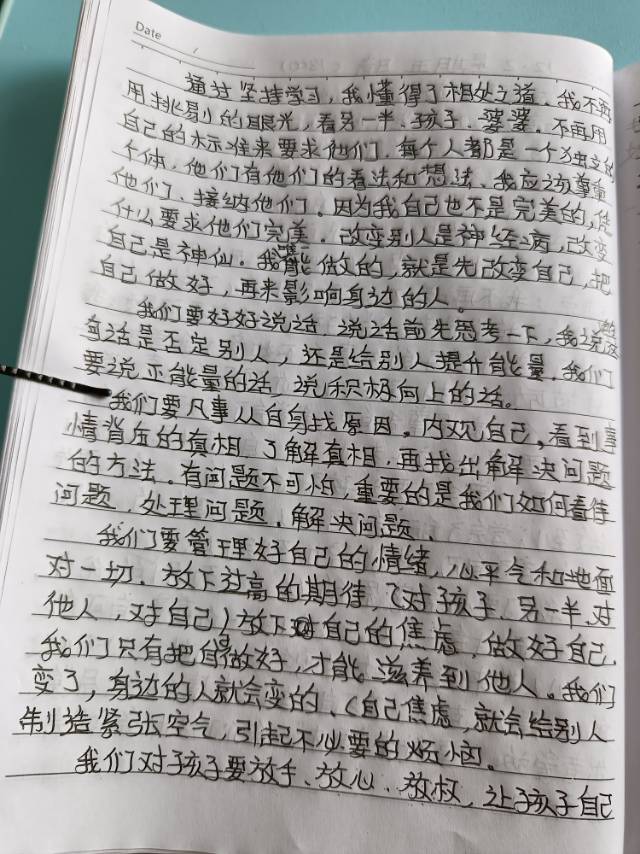 Date /
通过坚持学习，我懂得了相处之道，我不再
用挑剔的眼光，看另一半、孩子、婆婆，不再用
自己的标准来要求他们，每个人都是一个独立的
个体，他们有他们的看法和想法、我应该尊重
他们、接纳他们。因为我自己也不是完美的，凭
什么要求他们完美，改变别人是神经病，改变
自己是神仙。我能做的，就是先改变自己，把
自己做好，再来影响身边的人。
我们要好好说话，说话前先思考一下，我说这
句话是否定别人，还是给别人提升能量，我们
要说正能量的话，说积极向上的话。
我们要凡事从自身找原因，内观自己，看到事
情背后的真相，了解真相，再找出解决问题
的方法。有问题不可怕，重要的是我们如何看待
问题，处理问题，解决问题。
我们要管理好自己的情绪，心平气和地面
对一切，放下过高的期待，（对孩子、另一半、对
他人，对自己）放下对自己的焦虑，做好自己，
我们只有把自己做好，才能滋养到他人。我们
变了，身边的人就会变的，（自己焦虑，就会给别人
制造紧张空气，引起不必要的烦恼。
我们对孩子要放手、放心、放权，让孩子自己